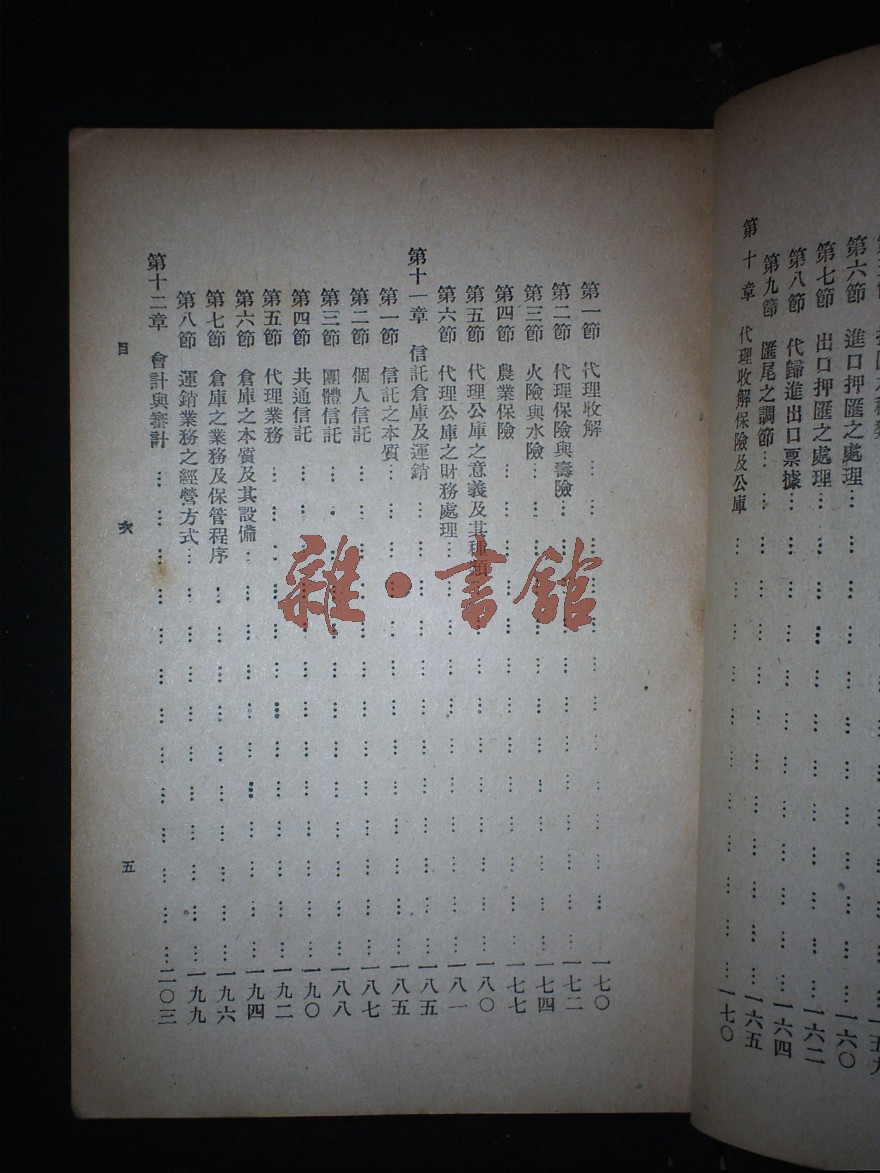 第六節 進口押匯之處理… … … … … … … … 一六〇
第七節 出口押匯之處理… … … … … … … … 一六二
第八節 代歸進出口票據… … … … … … … … 一六四
第九節 匯尾之調節… … … … … … … … … 一六五
第十章 代理收解保險及公庫 … … … … … … … … 一七〇
第一節 代理收解 … … … … … … … … … … 一七〇
第二節 代理保險與壽險… … … … … … … … … 一七二
第三節 火險與水險 … … … … … … … … … 一七四
第四節 農業保險 … … … … … … … … … … 一七七
第五節 代理公庫之意義及其種類 … … … … … … … 一八〇
第六節 代理公庫之財務處理… … … … … … … … 一八一
第十一章 信託倉庫及運銷 … … … … … … … … … 一八五
第一節 信託之本質… … … … … … … … … … 一八五
第二節 個人信託 … … … … … … … … … … 一八七
第三節 團體信託 … … … … … … … … … … 一八八
第四節 共通信託 … … … … … … … … … … 一九〇
第五節 代理業務 … … … … … … … … … … 一九二
第六節 倉庫之本質及其設備… … … … … … … … 一九四
第七節 倉庫之業務及保管程序 … … … … … … … … 一九六
第八節 運銷業務之經營方式… … … … … … … … 一九九
第十二章 會計與審計 … … … … … … … … … … 二〇三
目 次 五
雜·書館